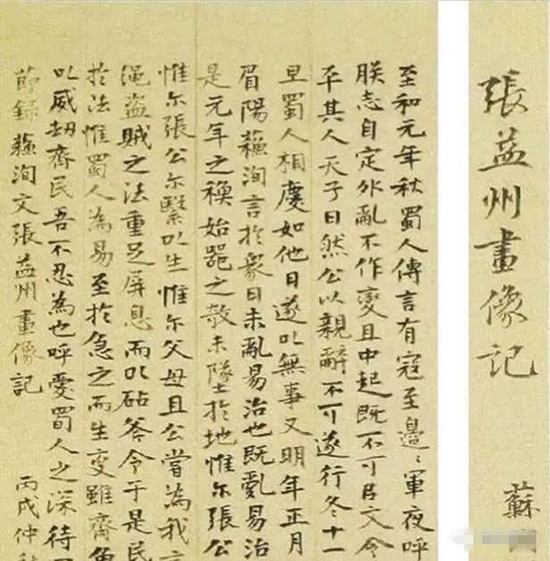 張益州畫像記 蘇
至和元年秋蜀人傳言有寇至邊〻軍夜呼
朕志自定外亂不作變且中起既不可㠯文令
乎其人天子曰然公以親辭不可遂行冬十一
旦蜀人相慶如他日遂㠯無事又明年正月
眉陽蘇洵言於衆曰未亂易治也既亂易治
是元年之秋始噐之欹未墜於地惟尔張公
惟尔張公尔繄㠯生惟尔父母且公嘗為我言
繩盜賊之法重足屏息而㠯砧斧令于是民
於法惟蜀人為易至於急之而生變雖齊魯
㠯威劫齊民吾不忍為也呼愛蜀人之深待
節錄蘇洵文張益州畫像記 丙戌仲秋